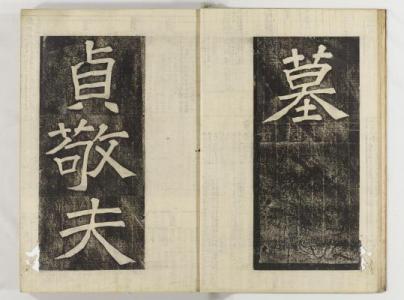 墓
貞敬夫